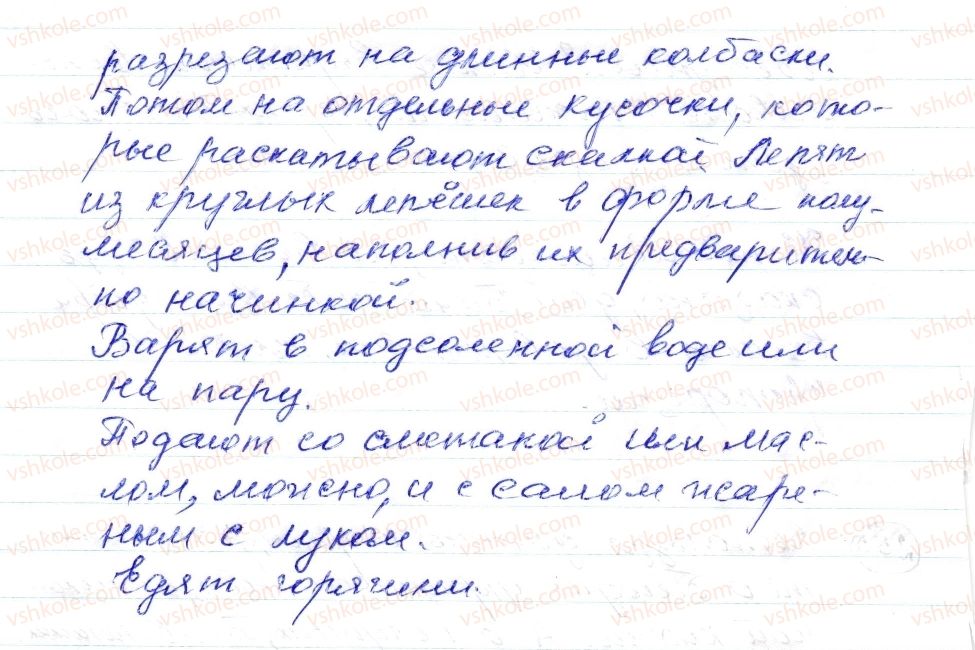 разрезают на длинные колбаски.
Потом на отдельные кусочки, кото-
рые раскатывают скалкой Лепят
из круглых лепёшек в форме полу-
месяцев, наполнив их предваритель-
но начинкой.
Варят в подсоленной воде или
на пару.
Подают со сметаной или мас-
лом, можно, и с салом жаре-
ным с луком.
Едят горячими.
vshkole.com